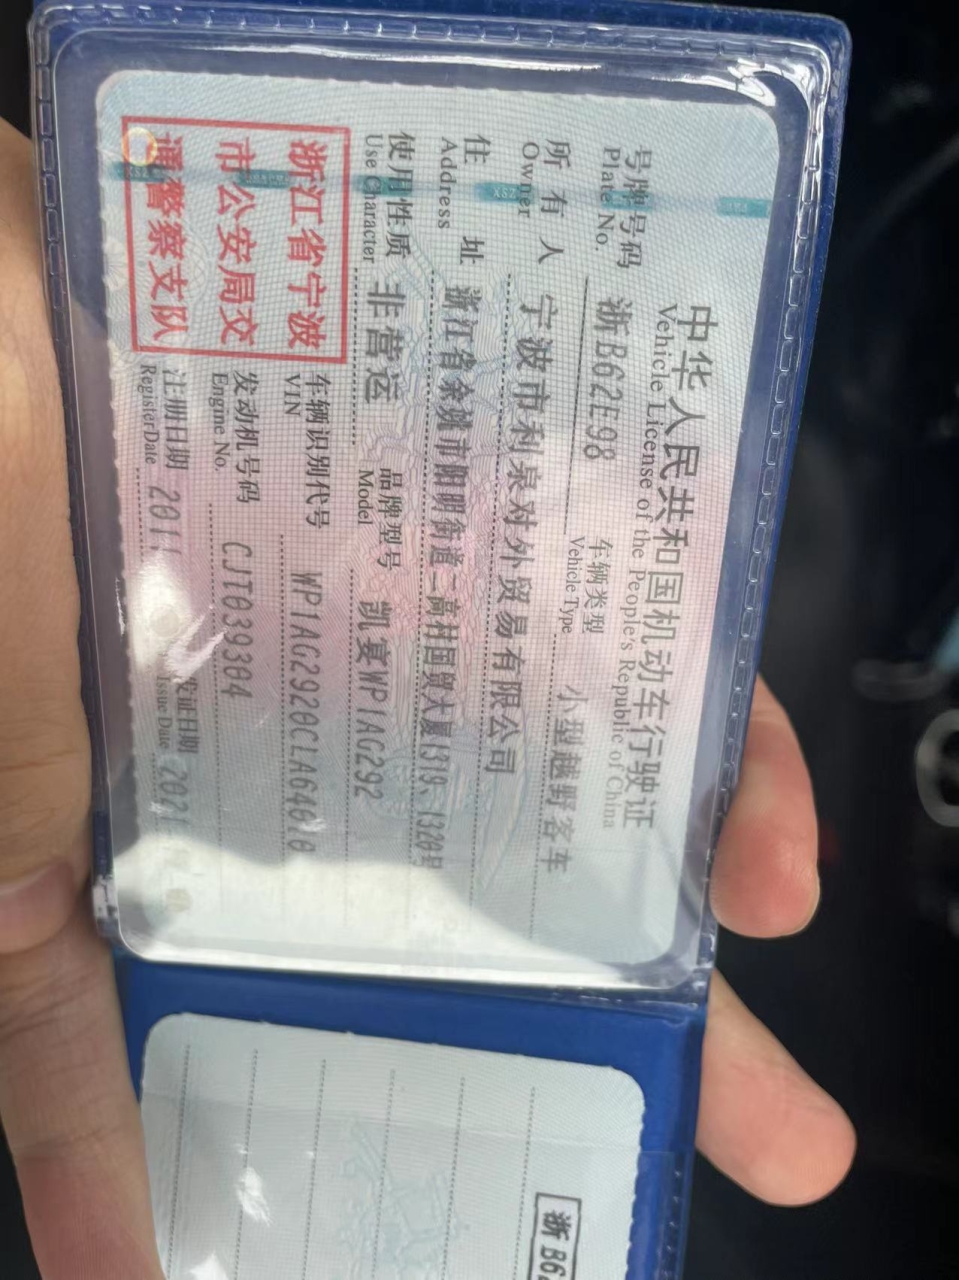 中华人民共和国机动车行驶证
Vehicle License of the People's Republic of China
号牌号码 浙B62E98 车辆类型 小型越野客车
Plate No. Vehicle Type
所有人 宁波市利泉对外贸易有限公司
Owner
住址 浙江省余姚市阳明街道二高村国贸大厦1319、1320号
Address
使用性质 非营运 品牌型号 凯宴WP1AG292
Use Character Model
浙江省宁波
市公安局交
通警察支队
车辆识别代号 WP1AG2920CLA64610
VIN
发动机号码 CJT039304
Engine No.
注册日期 2011 发证日期 2021
Register Date Issue Date
浙B62